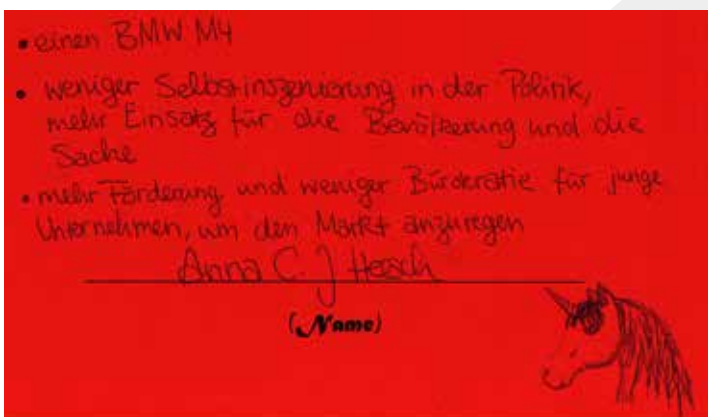 • einen BMW M4
• weniger Selbstinszenierung in der Politik,
mehr Einsatz für die Bevölkerung und die
Sache
• mehr Förderung und weniger Bürokratie für junge
Unternehmen, um den Markt anzuregen
Anna C. J Hesch
(Name)